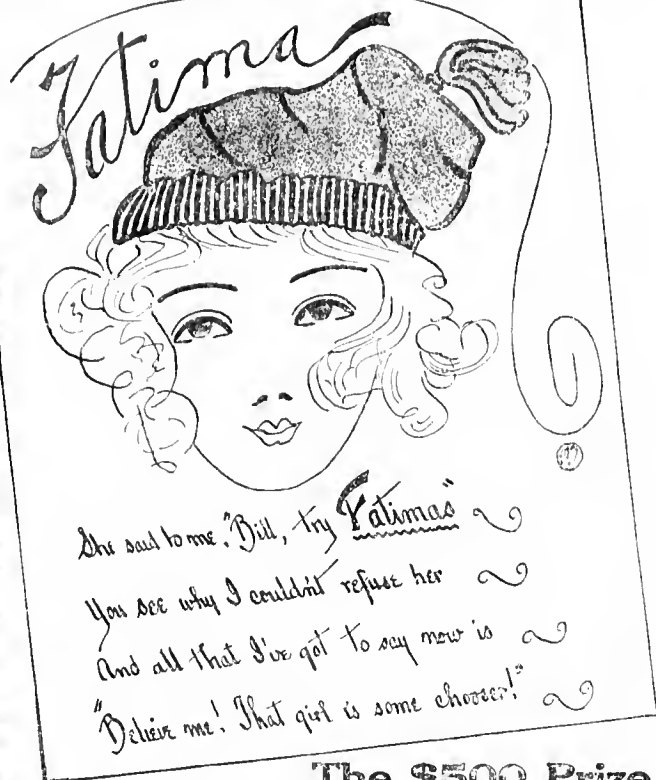 Fatima
She said to me, "Bill, try Fatimas"
You see why I couldn't refuse her
And all that I've got to say now is
"Believe me! That girl is some chooser!"
The $500 Prize